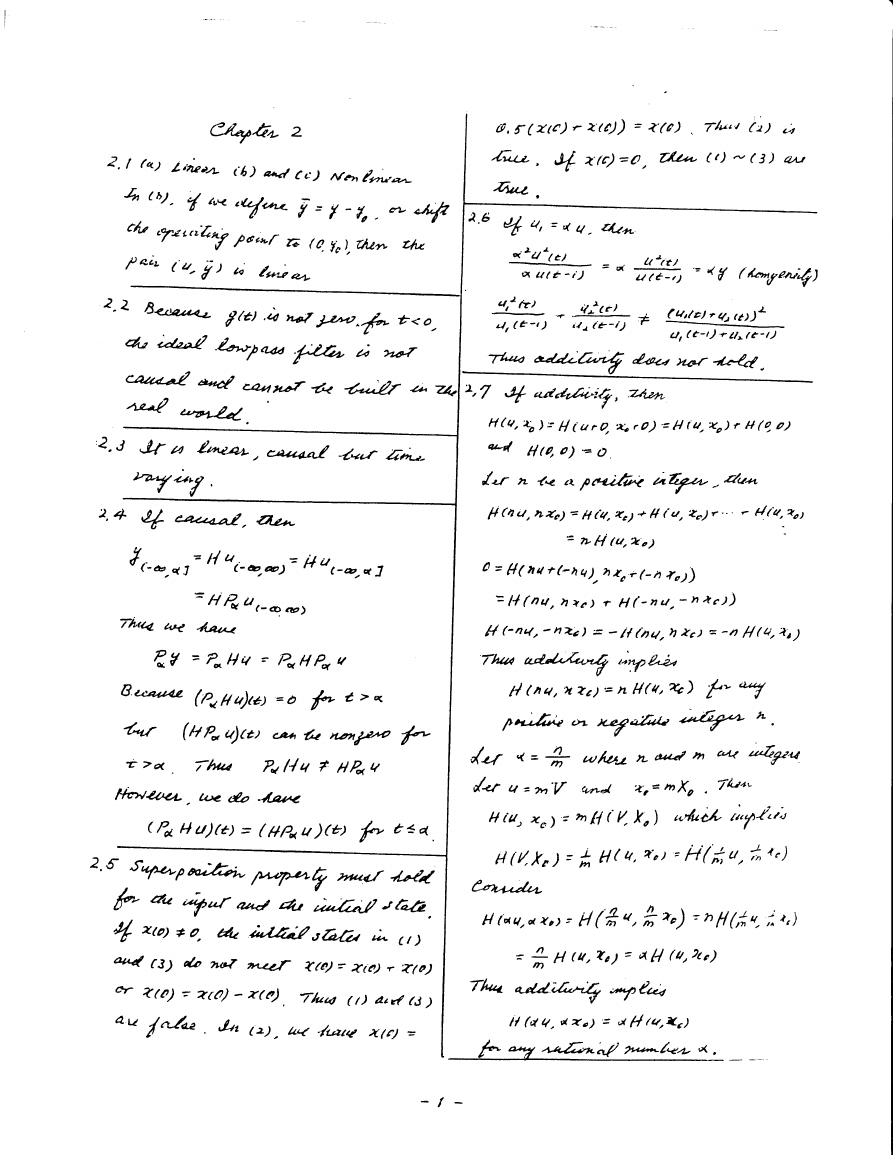 Chapter 2
2.1 (a) Linear (b) and (c) Nonlinear
In (b), if we define ȳ = y - y₀, or shift
the operating point to (0, y₀), then the
pair (u, ȳ) is linear
2.2 Because g(t) is not zero for t<0,
the ideal lowpass filter is not
causal and cannot be built in the
real world.
2.3 It is linear, causal but time
varying.
2.4 If causal, then
y_(-∞,α] = Hu_(-∞,∞) = Hu_(-∞,α]
= HP_α u_(-∞,∞)
Thus we have
P_α y = P_α Hu = P_α HP_α u
Because (P_α Hu)(t) = 0 for t>α
but (HP_α u)(t) can be nonzero for
t>α. Thus P_α Hu ≠ HP_α u
However, we do have
(P_α Hu)(t) = (HP_α u)(t) for t≤α
2.5 Superposition property must hold
for the input and the initial state.
If x(0) ≠ 0, the initial states in (1)
and (3) do not meet x(0) = x(0) + x(0)
or x(0) = x(0) - x(0). Thus (1) and (3)
are false. In (2), we have x(0) =
0.5(x(0) + x(0)) = x(0). Thus (2) is
true. If x(0)=0, then (1) ~ (3) are
true.
2.6 If u₁ = αu, then
α²u²(t) / αu(t-1) = α u²(t) / u(t-1) = αy (homgeneity)
u₁²(t) / u₁(t-1) + u₂²(t) / u₂(t-1) ≠ (u₁(t)+u₂(t))² / u₁(t-1)+u₂(t-1)
Thus additivity does not hold.
2.7 If additivity, then
H(u, x₀) = H(u+0, x₀+0) = H(u, x₀) + H(0,0)
and H(0,0) = 0.
Let n be a positive integer, then
H(nu, nx₀) = H(u, x₀) + H(u, x₀) + ··· + H(u, x₀)
= n H(u, x₀)
0 = H(nu+(-nu), nx₀+(-nx₀))
= H(nu, nx₀) + H(-nu, -nx₀))
H(-nu, -nx₀) = -H(nu, nx₀) = -n H(u, x₀)
Thus additivity implies
H(nu, nx₀) = n H(u, x₀) for any
positive or negative integer n.
Let α = n/m where n and m are integers
Let u = mV and x₀ = mX₀. Then
H(u, x₀) = mH(V, X₀) which implies
H(V, X₀) = 1/m H(u, x₀) = H(1/m u, 1/m x₀)
Consider
H(αu, αx₀) = H(n/m u, n/m x₀) = nH(1/m u, 1/m x₀)
= n/m H(u, x₀) = αH(u, x₀)
Thus additivity implies
H(αu, αx₀) = αH(u, x₀)
for any rational number α.
- 1 -